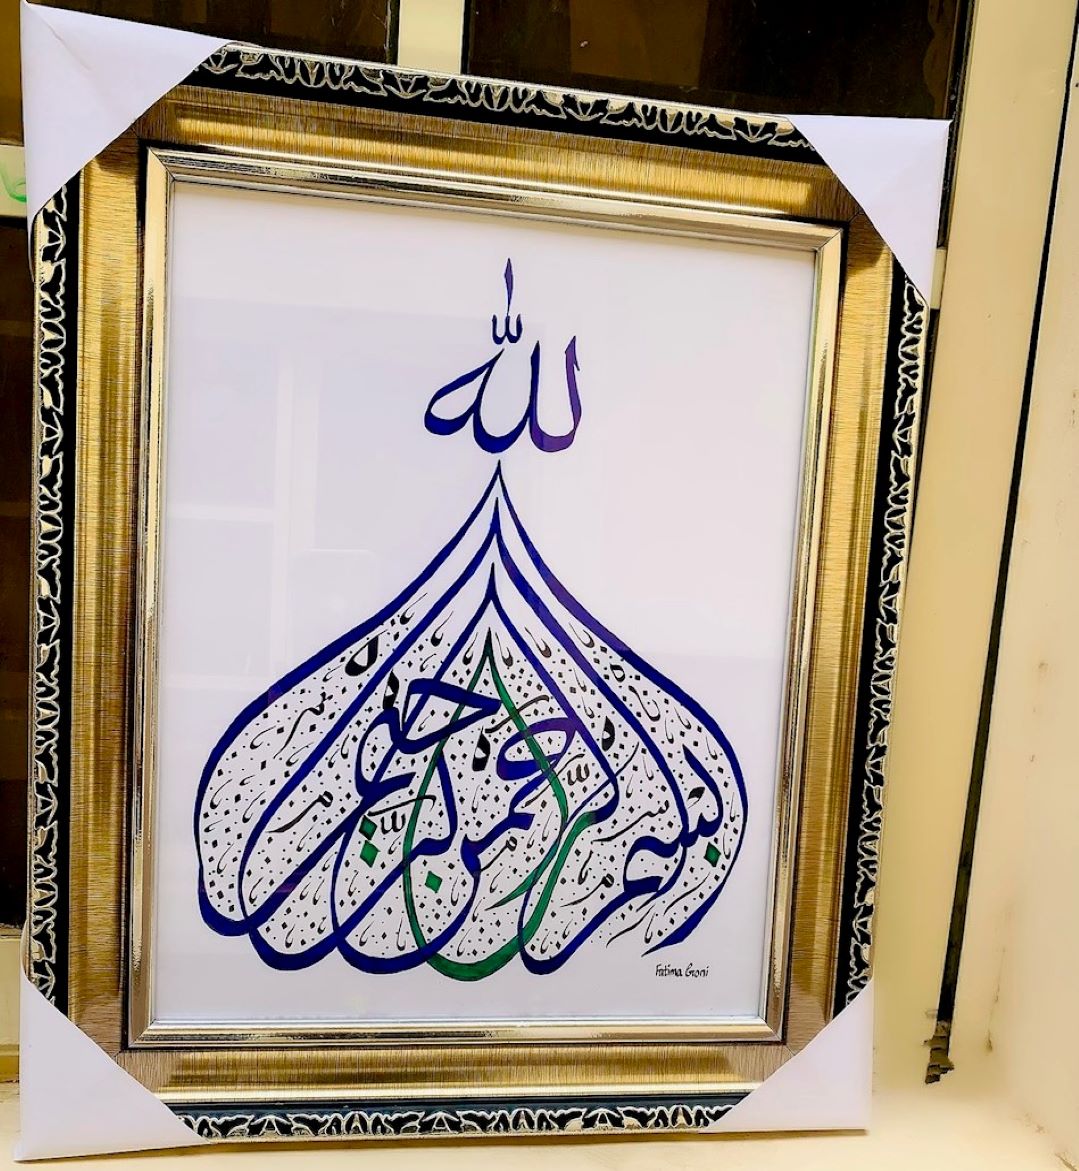 الله
بسم الرحمن الرحيم
Fatima Goni